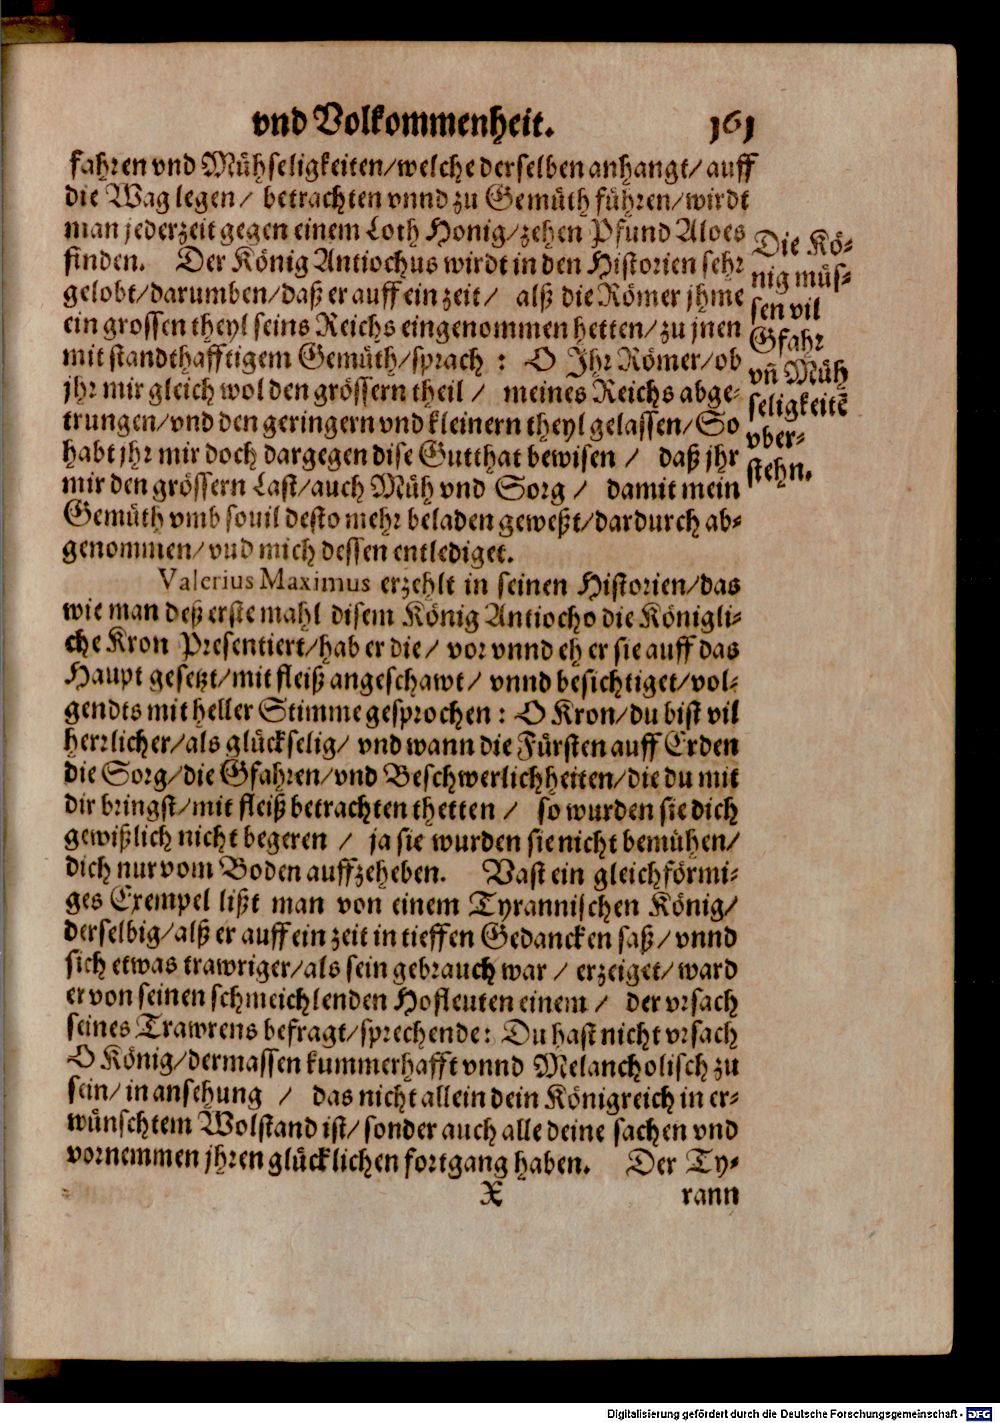 vnd Volkommenheit. 161
fahren vnd Mühseligkeiten/welche derselben anhangt/auff
die Wag legen/ betrachten vnnd zu Gemüth führen/wirdt
man jederzeit gegen einem Loth Honig/zehen Pfund Aloes
finden. Der König Antiochus wirdt in den Historien sehr
gelobt/darumben/daß er auff ein zeit/ alß die Römer jhme
ein grossen theyl seins Reichs eingenommen hetten/zu jnen
mit standthafftigem Gemüth/sprach : O Ihr Römer/ob
jhr mir gleich wol den grössern theil / meines Reichs abge-
trungen/vnd den geringern vnd kleinern theyl gelassen/So
habt jhr mir doch dargegen dise Gutthat bewisen / daß jhr
mir den grössern Last/auch Müh vnd Sorg / damit mein
Gemüth vmb souil desto mehr beladen geweßt/dardurch ab-
genommen/vnd mich dessen entlediget.
Die Kö-
nig müs-
sen vil
Gfahr
vñ Müh
seligkeitē
vber-
stehn.
Valerius Maximus erzehlt in seinen Historien/das
wie man deß erste mahl disem König Antiocho die Königli-
che Kron Presentiert/hab er die/ vor vnnd eh er sie auff das
Haupt gesetzt/mit fleiß angeschawt/ vnnd besichtiget/vol-
gendts mit heller Stimme gesprochen : O Kron/du bist vil
herrlicher/als glückselig/ vnd wann die Fürsten auff Erden
die Sorg/die Gfahren/vnd Beschwerlichheiten/die du mit
dir bringst/mit fleiß betrachten thetten / so wurden sie dich
gewißlich nicht begeren / ja sie wurden sie nicht bemühen/
dich nur vom Boden auffzeheben. Vast ein gleichförmi-
ges Exempel lißt man von einem Tyrannischen König/
derselbig/alß er auff ein zeit in tieffen Gedancken saß/vnnd
sich etwas trawriger/als sein gebrauch war / erzeiget/ward
er von seinen schmeichlenden Hofleuten einem / der vrsach
seines Trawrens befragt/sprechende: Du hast nicht vrsach
O König/dermassen kummerhafft vnnd Melancholisch zu
sein/ in ansehung / das nicht allein dein Königreich in er-
wünschtem Wolstand ist/sonder auch alle deine sachen vnd
vornemmen jhren glücklichen fortgang haben. Der Ty-
X rann
Digitalisierung gefördert durch die Deutsche Forschungsgemeinschaft - DFG